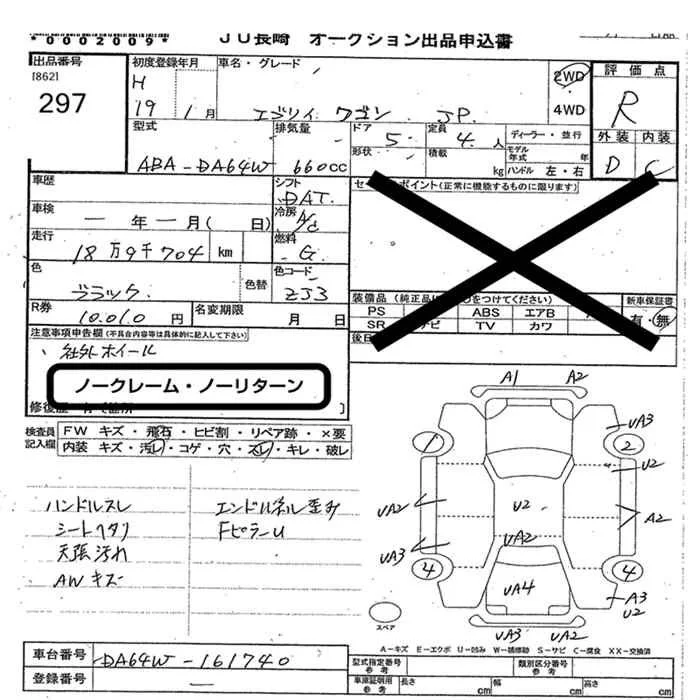 *0002009*
JU長崎 オークション出品申込書
出品番号
[862]
297
初度登録年月
H
19 1月
車名・グレード
エブリイ ワゴン JP.
2WD
4WD
評価点
R
外装 内装
D C
型式
ABA-DA64W
排気量
660cc
ドア 5
形状
定員 4 人
積載 kg
ディーラー・並行
モデル年式 年
ハンドル 左・右
車歴
シフト
DAT.
車検
一年一月( 日)
冷房
A/C
走行
18万9千704 km
燃料
G.
色
ブラック.
色替
色コード
ZJ3
R券
10.010 円
名変期限
月 日
ポイント(正常に機能するものに限ります)
装備品(純正品に つけてください)
PS ABS エアB
SR TV カワ
新車保証書
有・無
注意事項申告欄(不具合内容等は具体的に記入して下さい)
社外ホイール
ノークレーム・ノーリターン
検査員記入欄
FW キズ・飛石・ヒビ割・リペア跡・×要
内装 キズ・汚レ・コゲ・穴・スレ・キレ・破レ
ハンドルスレ
シートヘタリ
天張汚れ
AWキズ
エンドパネル歪み
FピラーU
A1 A2
UA3
1 2
U2
UA2 U2 A2
UA2
UA3
4 UA4 4
A3
U2
UA3 UA2
スペア
A-キズ E-エクボ U-凹み W-補修跡 S-サビ C-腐食 XX-交換済
車台番号
DA64W-161740
登録番号
—
型式指定番号
参考
類別区分番号
参考
車庫証明用
参考
長さ cm
幅 cm
高さ cm